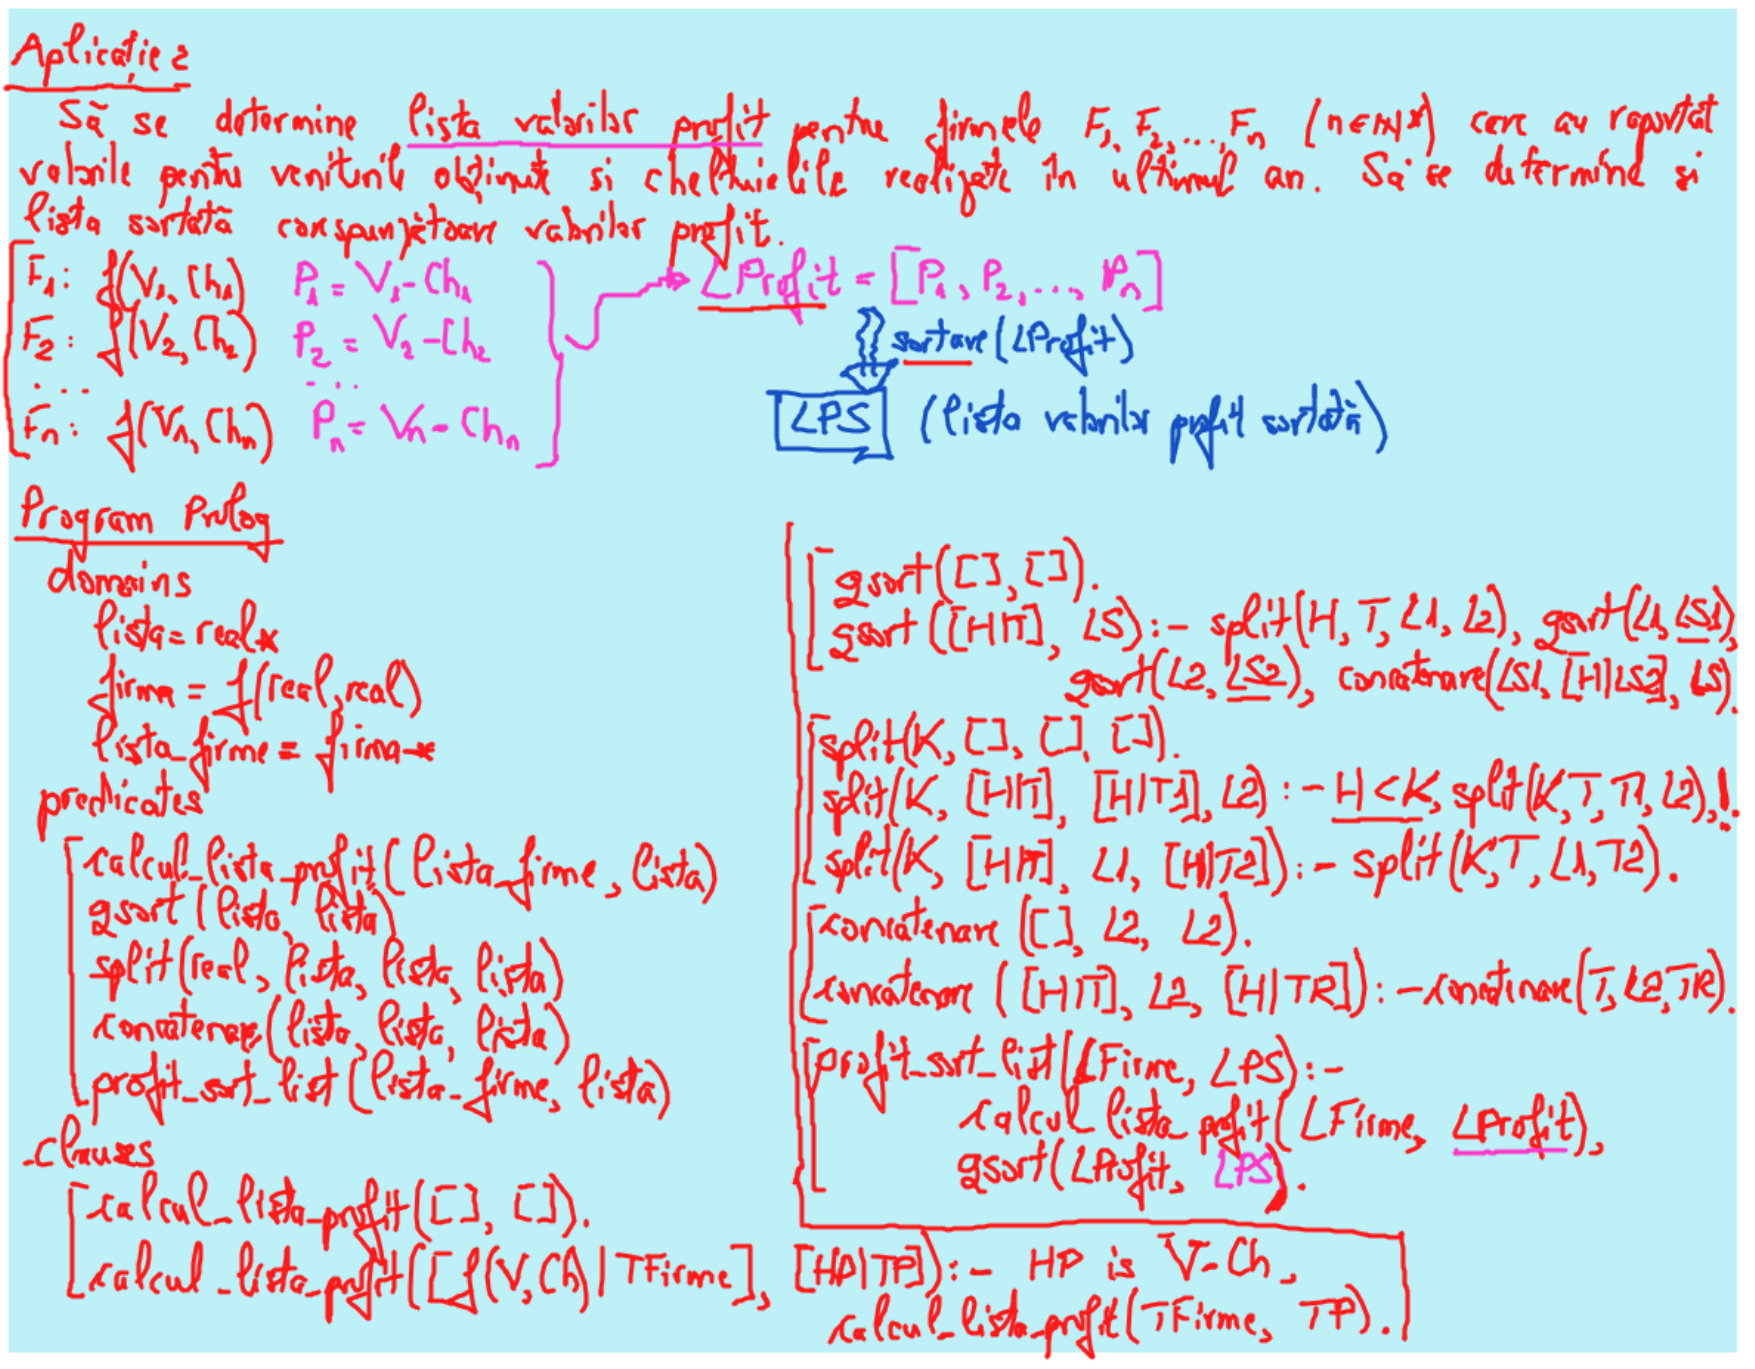 Aplicație
Să se determine lista valorilor profit pentru firmele F1, F2, ..., Fn (n∈N*) care au raportat
valorile pentru veniturile obținute si cheltuielile realizate în ultimul an. Să se determine si
lista sortată corespunzătoare valorilor profit.
F1: f(V1, Ch1) P1 = V1 - Ch1
F2: f(V2, Ch2) P2 = V2 - Ch2
...
Fn: f(Vn, Chn) Pn = Vn - Chn
LProfit = [P1, P2, ..., Pn]
sortare(LProfit)
LPS (lista valorilor profit sortată)
Program Prolog
domains
lista = real*
firma = f(real, real)
lista_firme = firma*
predicates
calcul_lista_profit(lista_firme, lista)
qsort(lista, lista)
split(real, lista, lista, lista)
concatenare(lista, lista, lista)
profit_sort_list(lista_firme, lista)
clauses
calcul_lista_profit([], []).
calcul_lista_profit([f(V,Ch)|TFirme], [HP|TP]):- HP is V-Ch,
calcul_lista_profit(TFirme, TP).
qsort([], []).
qsort([H|T], LS):- split(H, T, L1, L2), qsort(L1, LS1),
qsort(L2, LS2), concatenare(LS1, [H|LS2], LS).
split(K, [], [], []).
split(K, [H|T], [H|T1], L2):- H<K, split(K,T,T1,L2),!.
split(K, [H|T], L1, [H|T2]):- split(K,T,L1,T2).
concatenare([], L2, L2).
concatenare([H|T], L2, [H|TR]):-concatenare(T,L2,TR).
profit_sort_list(LFirme, LPS):-
calcul_lista_profit(LFirme, LProfit),
qsort(LProfit, LPS).